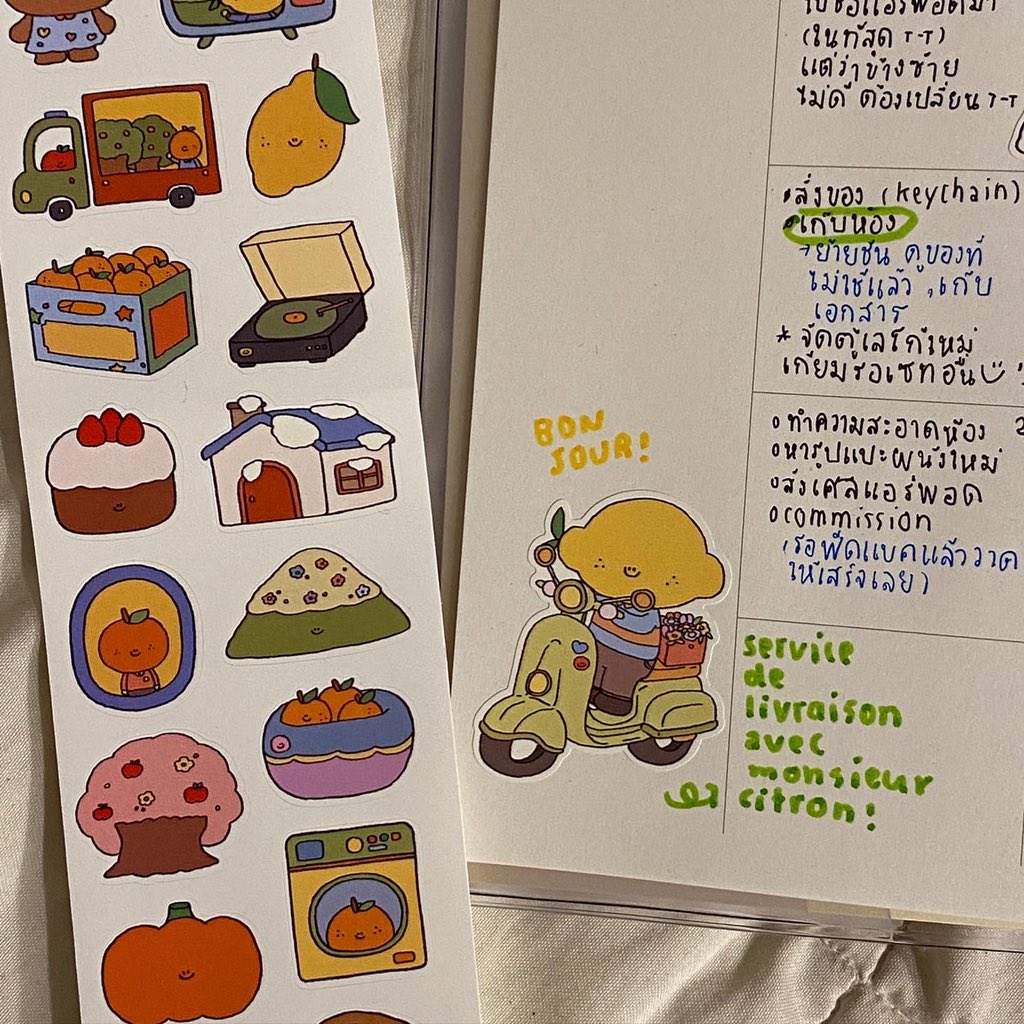 (ในที่สุด T-T)
แต่ว่าข้างซ้าย
ไม่ดี ต้องเปลี่ยน T-T
•สั่งของ (keychain)
•เก็บห้อง
→ย้ายชั้น ดูของที่
ไม่ใช้แล้ว ,เก็บ
เอกสาร
* จัดตู้เลโก้ใหม่
เตรียมรอเซทอื่น
BON
JOUR!
o ทำความสะอาดห้อง
o หารูปแปะผนังใหม่
o สั่งเคสแอร์พอด
o commission
(รอฟีดแบคแล้ววาด
ให้เสร็จเลย)
service
de
livraison
avec
monsieur
citron!